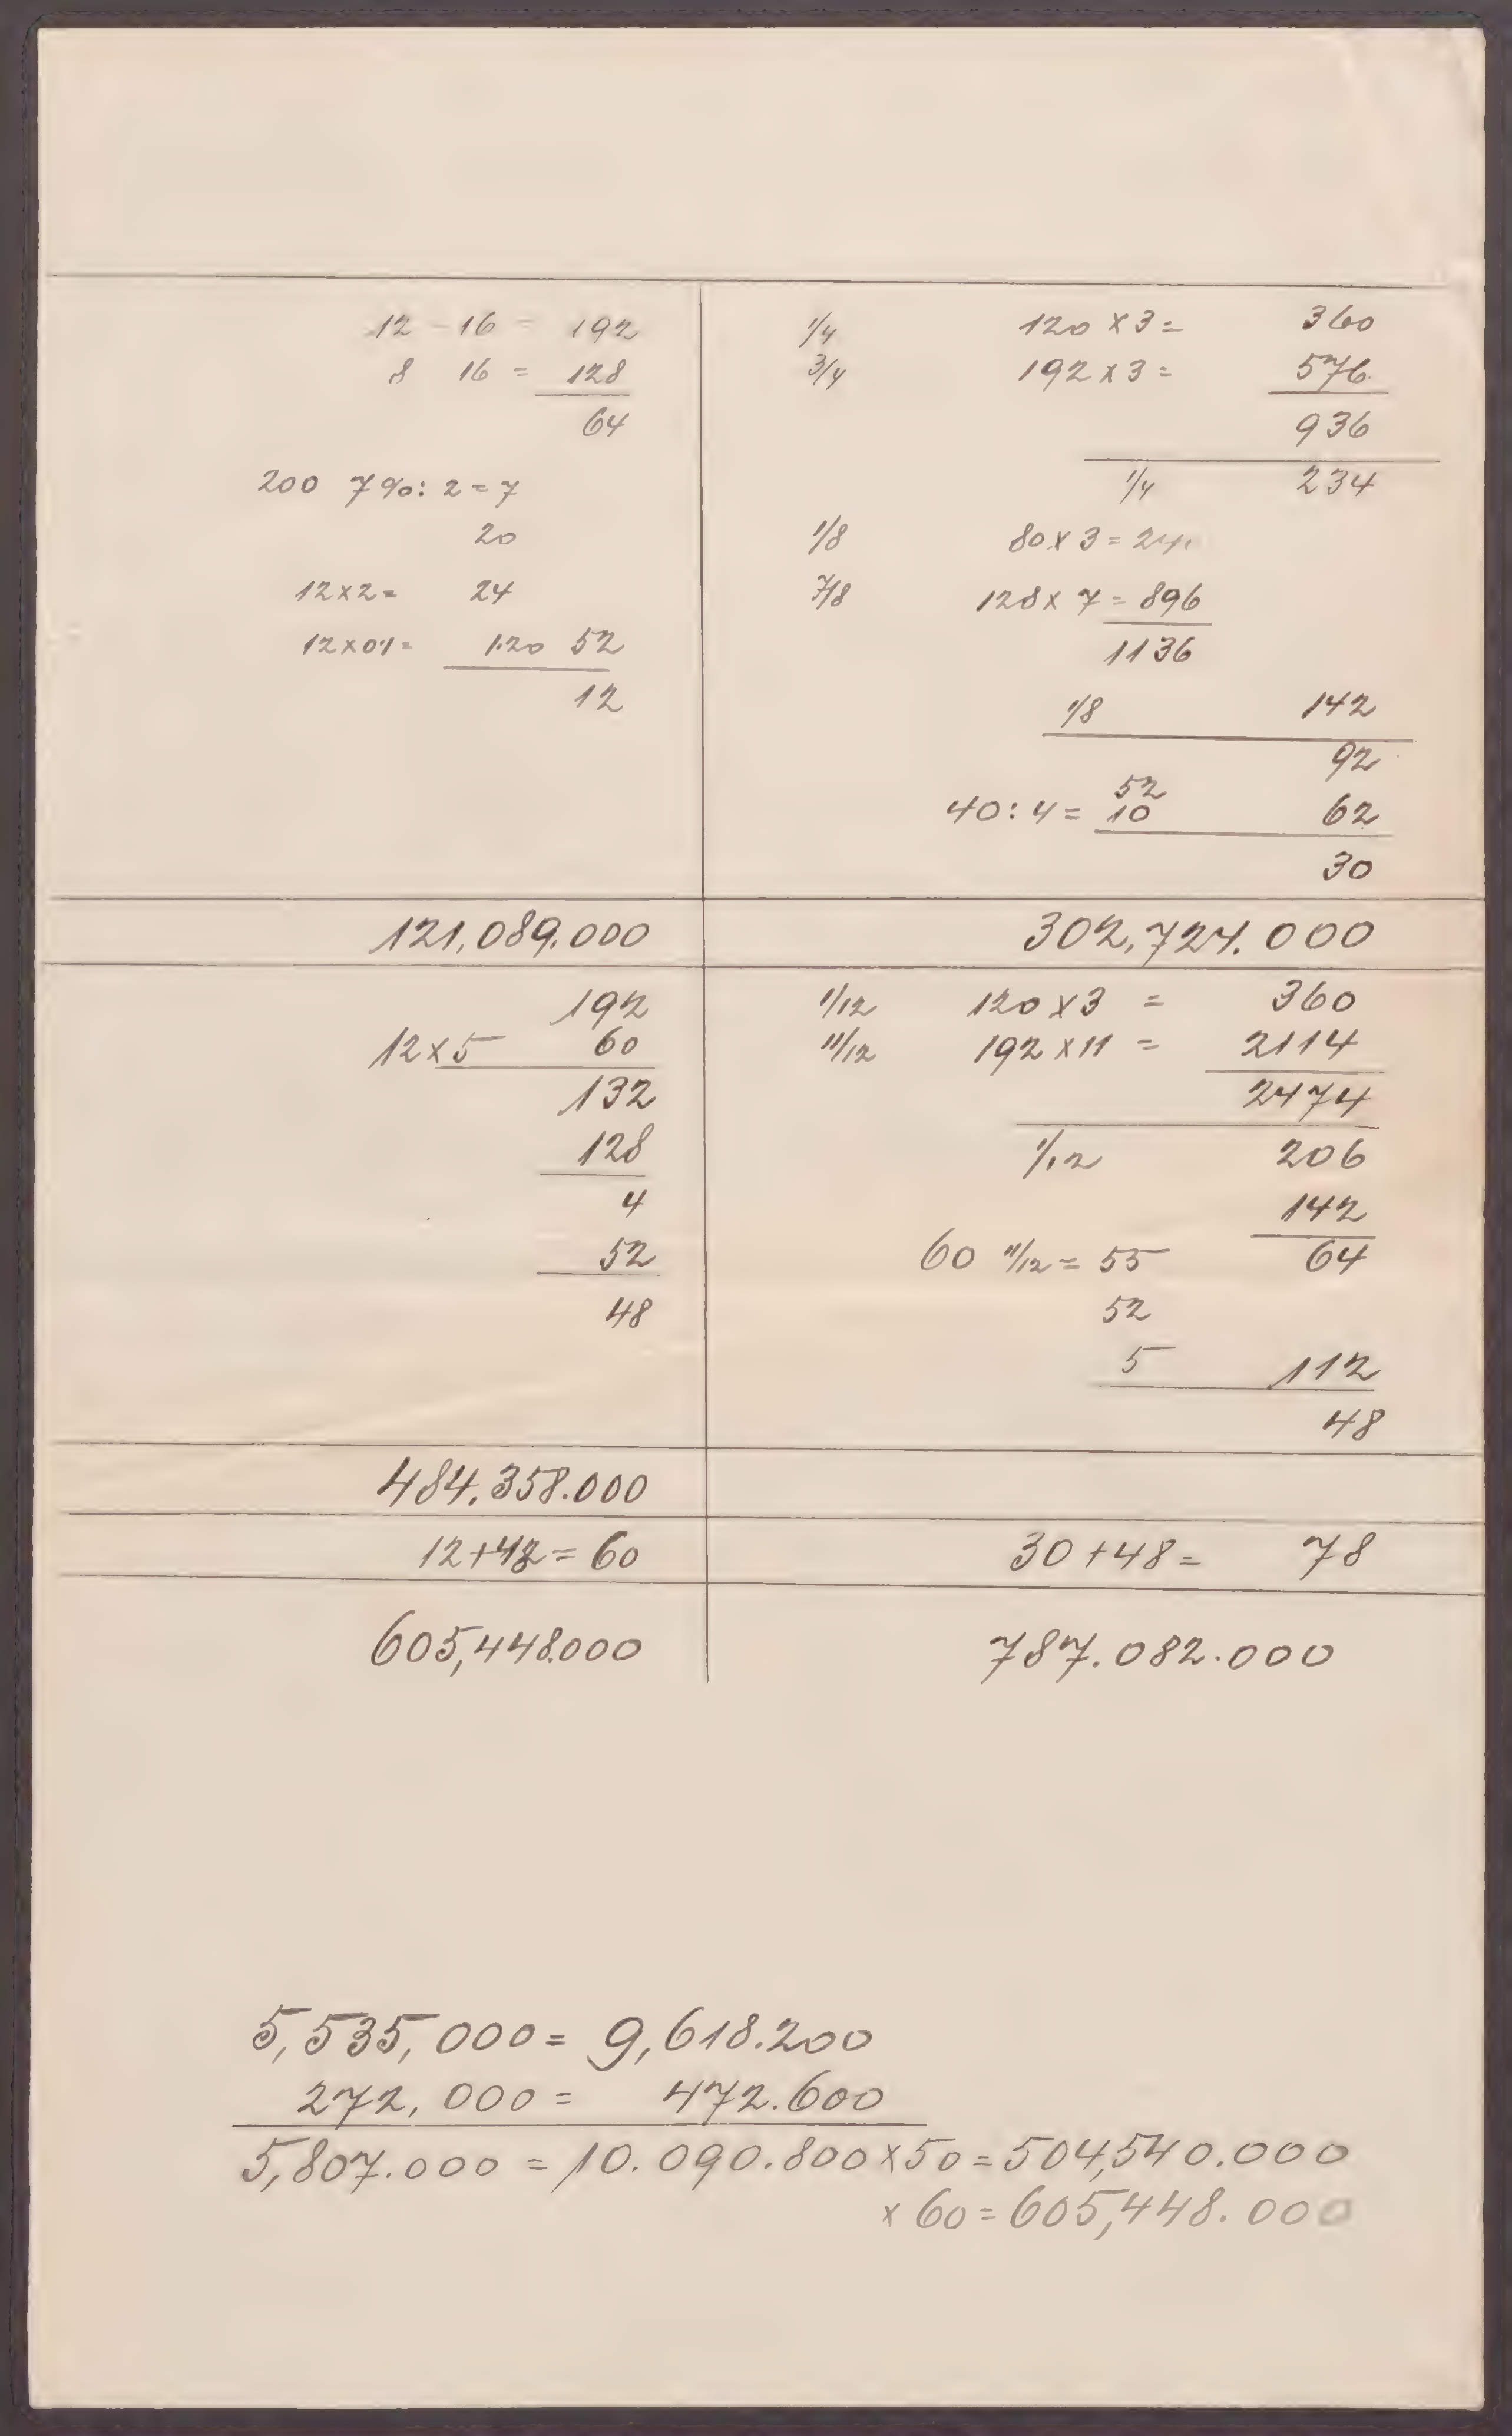 12 - 16 = 192
8 16 = 128
64
200 7%: 2 = 7
20
12 x 2 = 24
12 x 01 = 1.20 52
12
1/4 120 x 3 = 360
3/4 192 x 3 = 576
936
1/4 234
1/8 80 x 3 =
7/8 128 x 7 = 896
1136
1/8 142
92
52
40 : 4 = 10 62
30
121,089.000 302,724.000
192
12 x 5 60
132
128
4
52
48
1/12 120 x 3 = 360
11/12 192 x 11 = 2114
2474
1/12 206
142
60 11/12 = 55 64
52
5 112
48
484,358.000
12 + 48 = 60 30 + 48 = 78
605,448.000 787.082.000
5,535,000 = 9,618.200
272,000 = 472.600
5,807.000 = 10.090.800 x 50 = 504,540.000
x 60 = 605,448.000